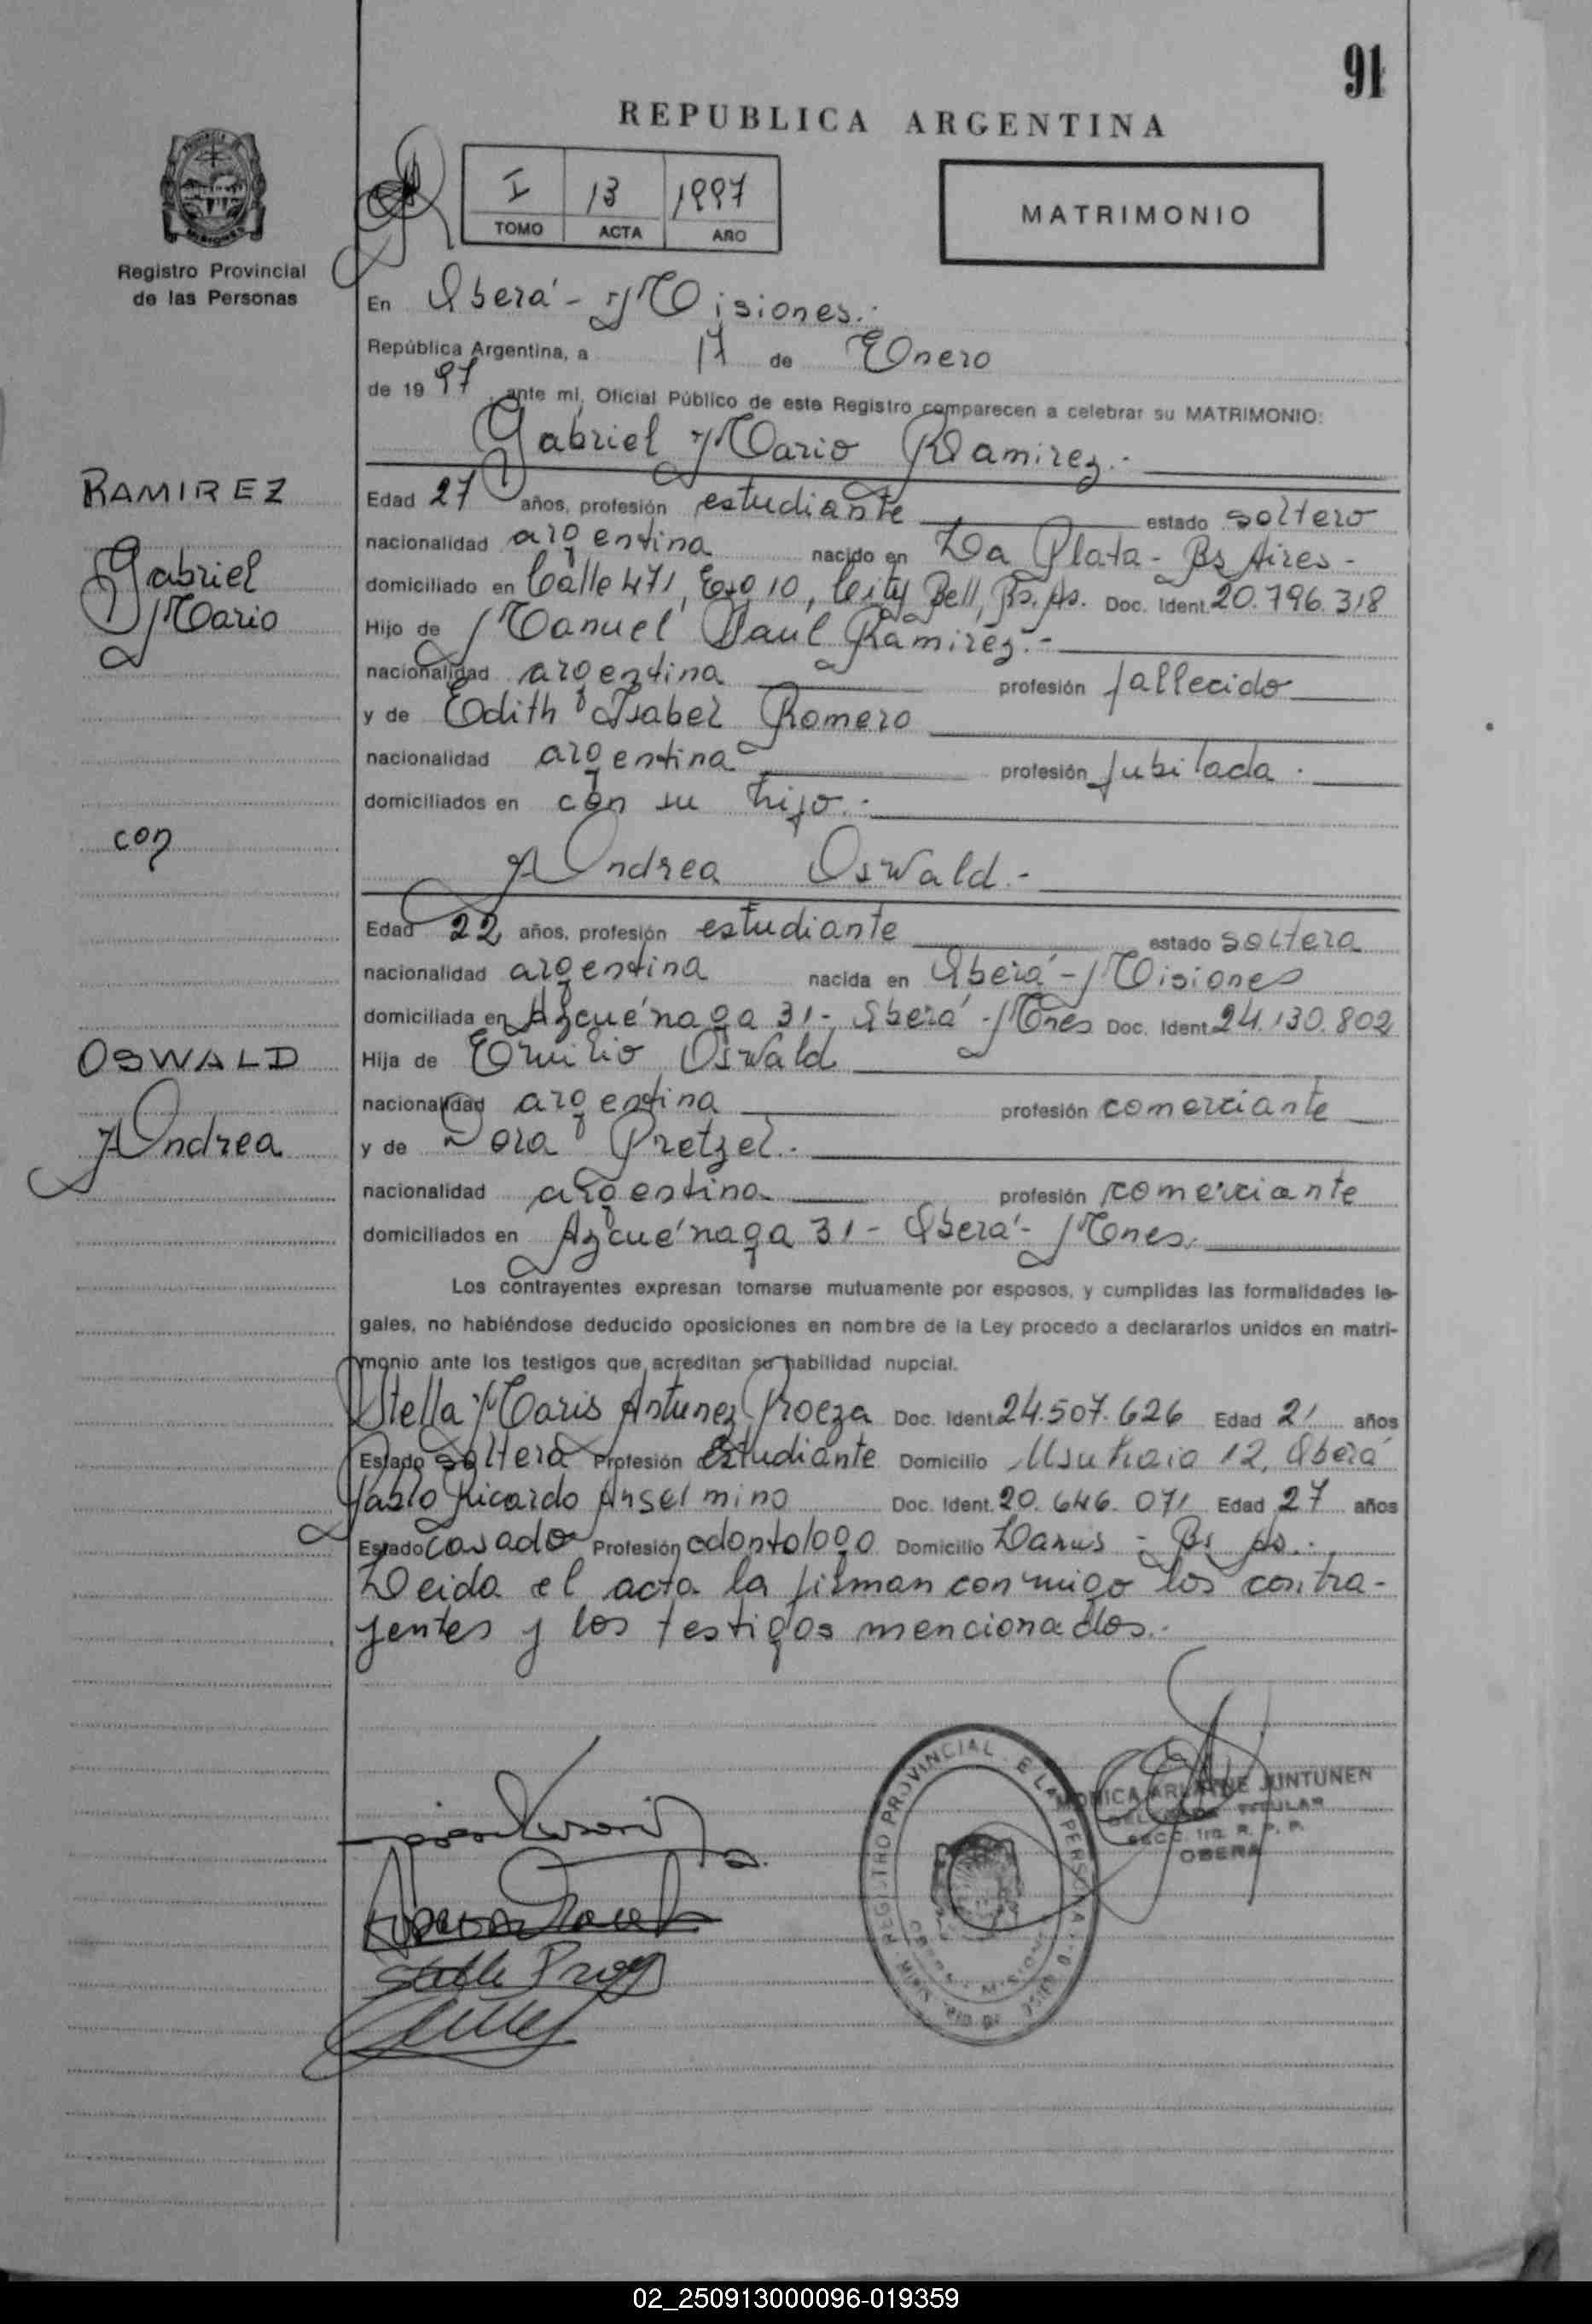 91
REPUBLICA ARGENTINA
I 13 1997
TOMO ACTA AÑO
MATRIMONIO
Registro Provincial
de las Personas
En Oberá - Misiones.-
República Argentina, a 17 de Enero
de 1997 ante mí, Oficial Público de este Registro comparecen a celebrar su MATRIMONIO:
Gabriel Mario Ramirez.-
RAMIREZ
Gabriel
Mario
Edad 27 años, profesión estudiante estado soltero
nacionalidad argentina nacido en La Plata - Bs Aires -
domiciliado en Calle 471, Esq 10, City Bell, Bs. As. Doc. Ident. 20.796.318
Hijo de Manuel Raul Ramirez.-
nacionalidad argentina profesión fallecido
y de Edith Isabel Romero
nacionalidad argentina profesión jubilada.
domiciliados en con su hijo.-
con
Andrea Oswald.-
Edad 22 años, profesión estudiante estado soltera
nacionalidad argentina nacida en Oberá - Misiones
domiciliada en Azcuénaga 31 - Oberá - Mnes Doc. Ident. 24.130.802
OSWALD
Andrea
Hija de Emilio Oswald
nacionalidad argentina profesión comerciante
y de Dora Pretzel.-
nacionalidad argentina profesión comerciante
domiciliados en Azcuénaga 31 - Oberá - Mnes.
Los contrayentes expresan tomarse mutuamente por esposos, y cumplidas las formalidades le-
gales, no habiéndose deducido oposiciones en nombre de la Ley procedo a declararlos unidos en matri-
monio ante los testigos que acreditan su habilidad nupcial.
Stella Maris Antunez Proeza Doc. Ident. 24.507.626 Edad 21 años
Estado soltera Profesión Estudiante Domicilio Usuhaia 12, Oberá
Pablo Ricardo Anselmino Doc. Ident. 20.646.071 Edad 27 años
Estado Casado Profesión odontologo Domicilio Lanus - Bs As.-
Leida el acta la firman conmigo los contra-
yentes y los testigos mencionados.-
REGISTRO PROVINCIAL
MONICA JUNTUNEN
TITULAR
SECC. 1ra. R. P. P.
OBERA
02_250913000096-019359